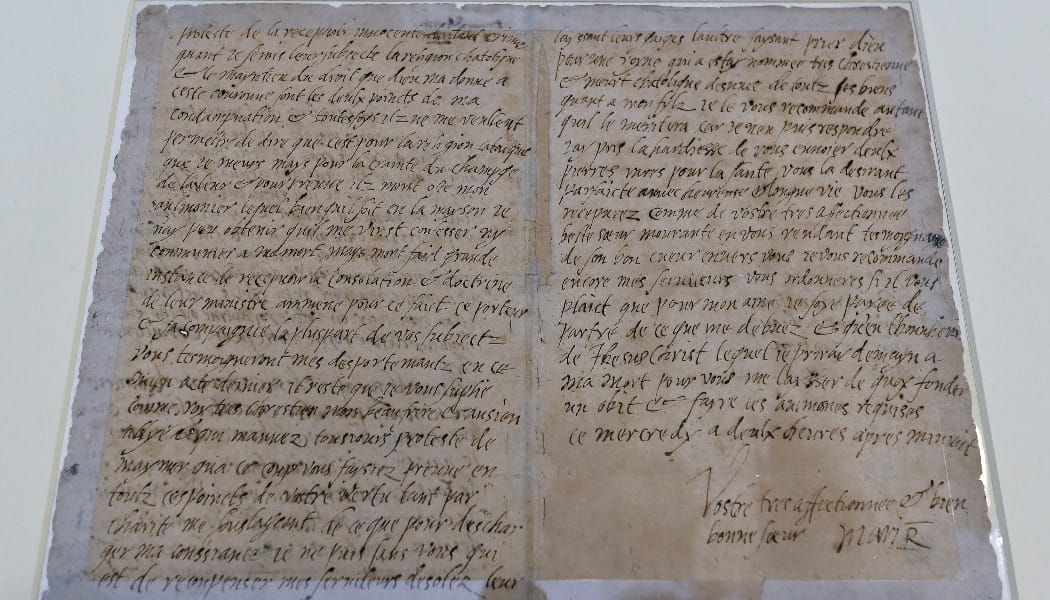 proteste de la recepvoir innocente de tout crime
quant je serois leur subiecte la religion chatolique
& le mayntien du droit que dieu ma donne a
ceste couronne sont les deulx poincts de ma
condampnation & toutesfoys ilz ne me veullent
permettre de dire que cest pour la religion catolique
que je meurs mays pour la crainte du champge
de la leur & pour preuve ilz mont oste mon
aulmonier lequel bien quil soit en la mayson je
nay peu obtenir quil me vinst confesser ny
communier a ma mort mays mont fait grande
instance de recepvoir la consolation & doctrine
de leur ministre ammene pour ce fait ce porteur
& sa compaignie la pluspart de vos subiectz
vous tesmoigneront mes deportemantz en ce
mien acte dernier il reste que je vous suplie
comme roy tres chrestien mon beau frere & ansien
allye & qui mauvez tousiours proteste de
maymer qua ce coup vous faysiez preuve en
toutz ces poincts de vostre vertu tant par
charite me soulageant de ce que pour deschar
ger ma conssiance je ne puis sans vous qui
est de reconpenser mes serviteurs desolez leur
layssant leurs gaiges laultre faysant prier dieu
pour une royne qui a estay nommee tres chrestienne
& meurt chatolique desnuee de toutz ses biens
quant a mon filz je le vous recommande autant
quil le meritera car je nen puis respondre
jay pris la hardiesse de vous envoier deulx
pierres rares pour la sante vous la desirant
parfaicte auvec heurense & longue vie vous les
recepvrez comme de vostre tres affectionnee
belle sœur mourante en vous rendant tesmoygnage
de son bon cueur envers vous je vous recommande
encore mes serviteurs vous ordonneres si il vous
plaict que pour mon ame je soye payee de
partye de ce que me debvez & quen lhonneur
de Jhesus Christ lequel je priray demayn a
ma mort pour vous me laysser de quoy fonder
un obit & fayre les aulmones requises
ce mercredy a deulx heures apres minuit
Vostre tres affectionnee & bien
bonne sœur Mari R